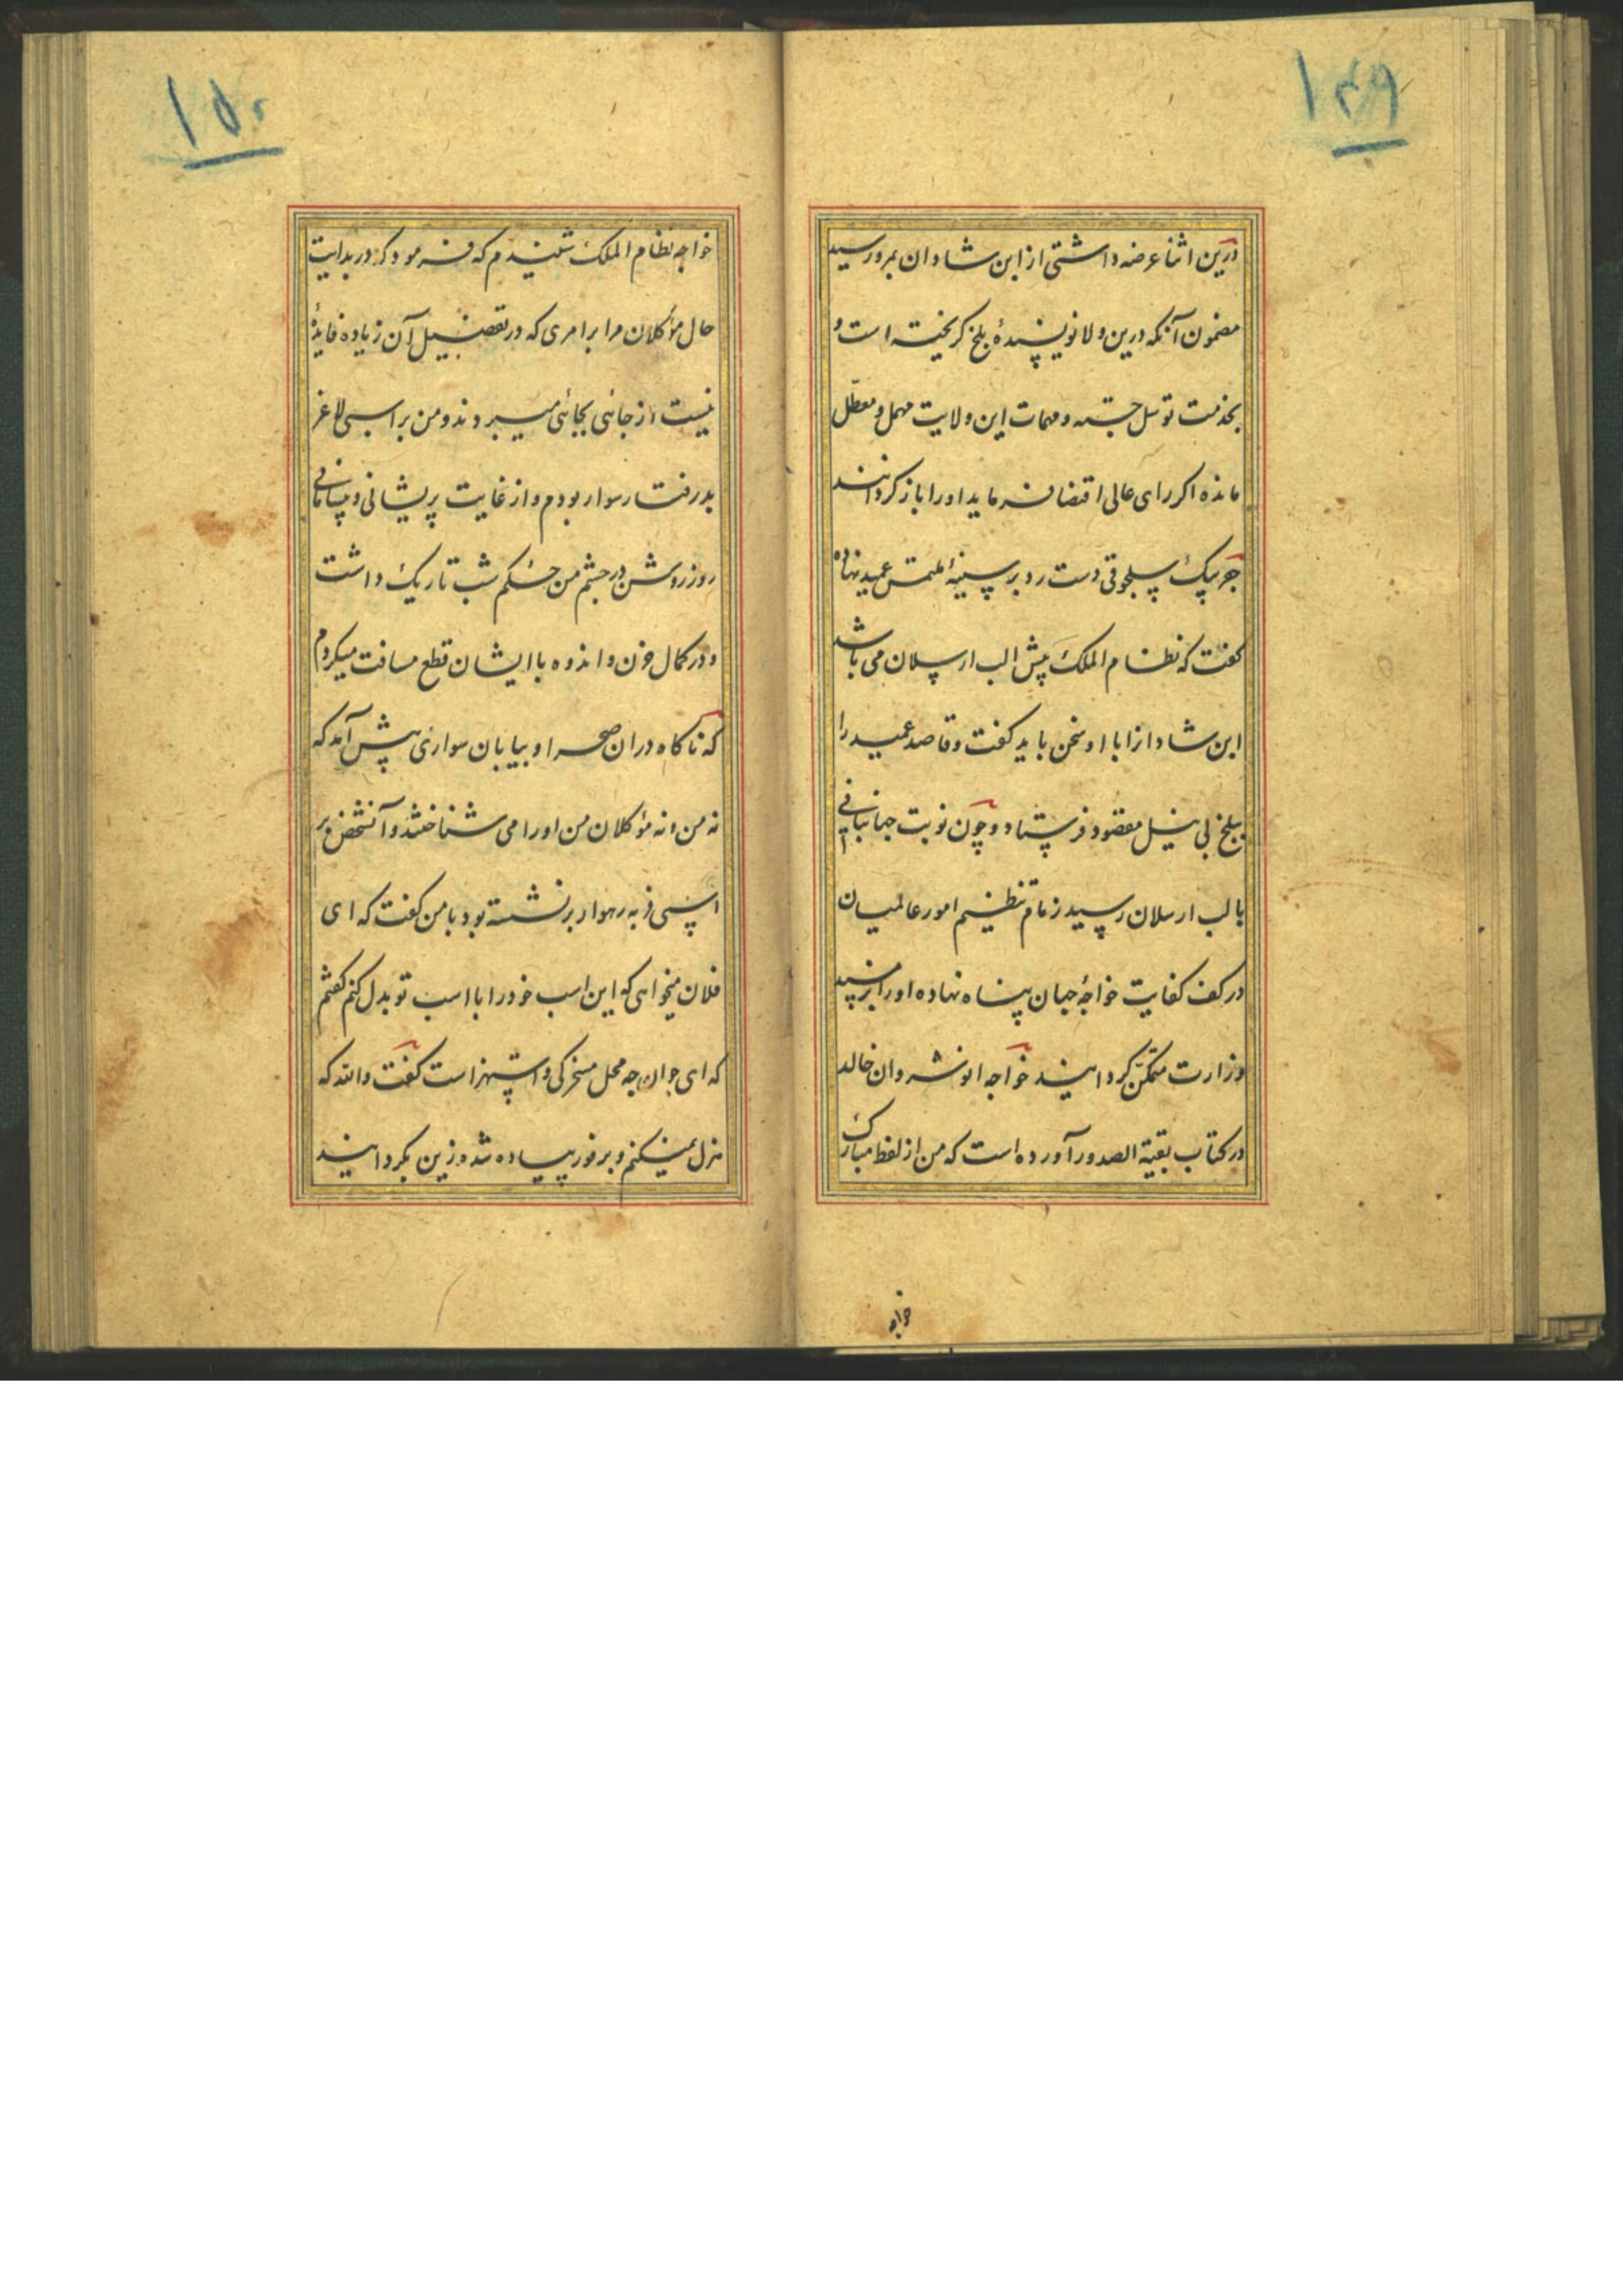 ۱۴۹
درین اثنا عرضه داشتی از ابن شادان بمرو رسید
مضمون آنکه درین ولا نویسندهٔ بلخ کریخته است و
بخدمت توسل جسته و مهمات این ولایت مهمل و معطل
مانده اکر رای عالی اقتضا فرماید او را باز کردانند
جغربیک سلجوقی دست رد بر سینهٔ ملتمس عمید نهاده
کفت که نظام الملک پیش الب ارسلان می باشد
ابن شادانرا با او سخن باید کفت و قاصد عمید را
ببلخ بی نیل مقصود فرستاد و چون نوبت جهانبانی
بالب ارسلان رسید زمام تنظیم امور عالمیان
در کف کفایت خواجهٔ جهان پناه نهاده او را بر مسند
وزارت متمکن کردانید خواجه انوشروان خالد
در کتاب بقیة الصدور آورده است که من از لفظ مبارک
خواجه
۱۵۰
خواجه نظام الملک شنیدم که فرمود که در بدایت
حال مؤکلان مرا برامری که در تفصیل آن زیاده فایدهٔ
نیست از جائی بجائی میبردند و من بر اسبی لاغر
بدرفتار سوار بودم و از غایت پریشانی و بیسامانی
روز روشن در چشم من حکم شب تاریک داشت
و در کمال حزن و اندوه با ایشان قطع مسافت میکردم
که ناکاه دران صحرا و بیابان سواری پیش آمد که
نه من و نه مؤکلان من او را می شناختند و آنشخص بر
اسبی فربه رهوار برنشسته بود با من کفت که ای
فلان میخواهی که این اسب خود را با اسب تو بدل کنم کفتم
که ای جوان چه محل مسخرکی و استهزاست کفت والله که
هزل نمیکنم و بر فور پیاده شده زین بکردانید